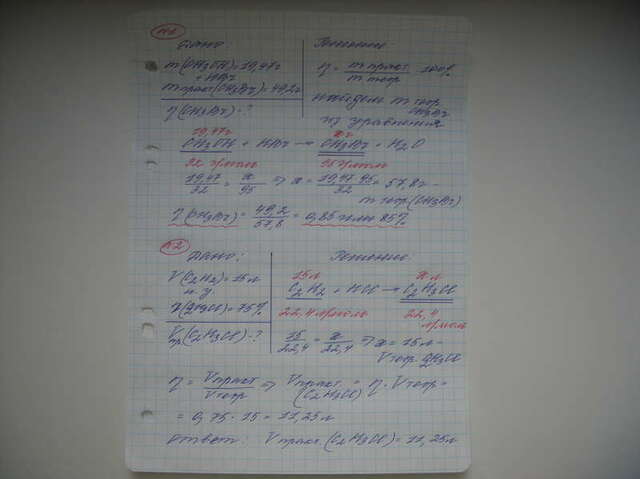 №1
Дано:
Решение
m(CH3OH) = 19,47г
+ HBr
m практ(CH3Br) = 49,2г
η(CH3Br) - ?
η = m практ. / m теор. · 100%
найдём m теор CH3Br
из уравнения
19,47г x г
CH3OH + HBr → CH3Br + H2O
32 г/моль 95 г/моль
19,47/32 = x/95 ⇒ x = 19,47·95/32 = 57,8г –
m теор (CH3Br)
η(CH3Br) = 49,2/57,8 = 0,85 или 85%
№2
Дано:
Решение
V(C2H2) = 15л
н.у
η(C2H3Cl) = 75%
Vпр(C2H3Cl) - ?
15л x л
C2H2 + HCl → C2H3Cl
22,4 л/моль 22,4
л/моль
15/22,4 = x/22,4 ⇒ x = 15л –
V теор. C2H3Cl
η = V практ/V теор ⇒ V практ. (C2H3Cl) = η · V теор =
= 0,75 · 15 = 11,25л
Ответ: V практ. (C2H3Cl) = 11,25л